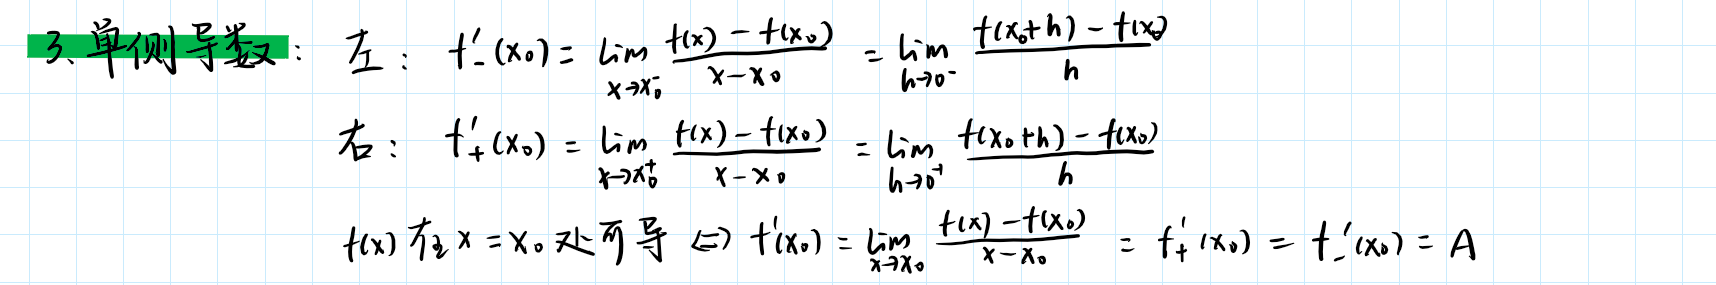 3、单侧导数： 左： f'₋(x₀) = lim_{x→x₀⁻} (f(x) − f(x₀))/(x − x₀) = lim_{h→0⁻} (f(x₀+h) − f(x₀))/h
右： f'₊(x₀) = lim_{x→x₀⁺} (f(x) − f(x₀))/(x − x₀) = lim_{h→0⁺} (f(x₀+h) − f(x₀))/h
f(x) 在 x = x₀ 处可导 ⇔ f'(x₀) = lim_{x→x₀} (f(x) − f(x₀))/(x − x₀) = f'₊(x₀) = f'₋(x₀) = A